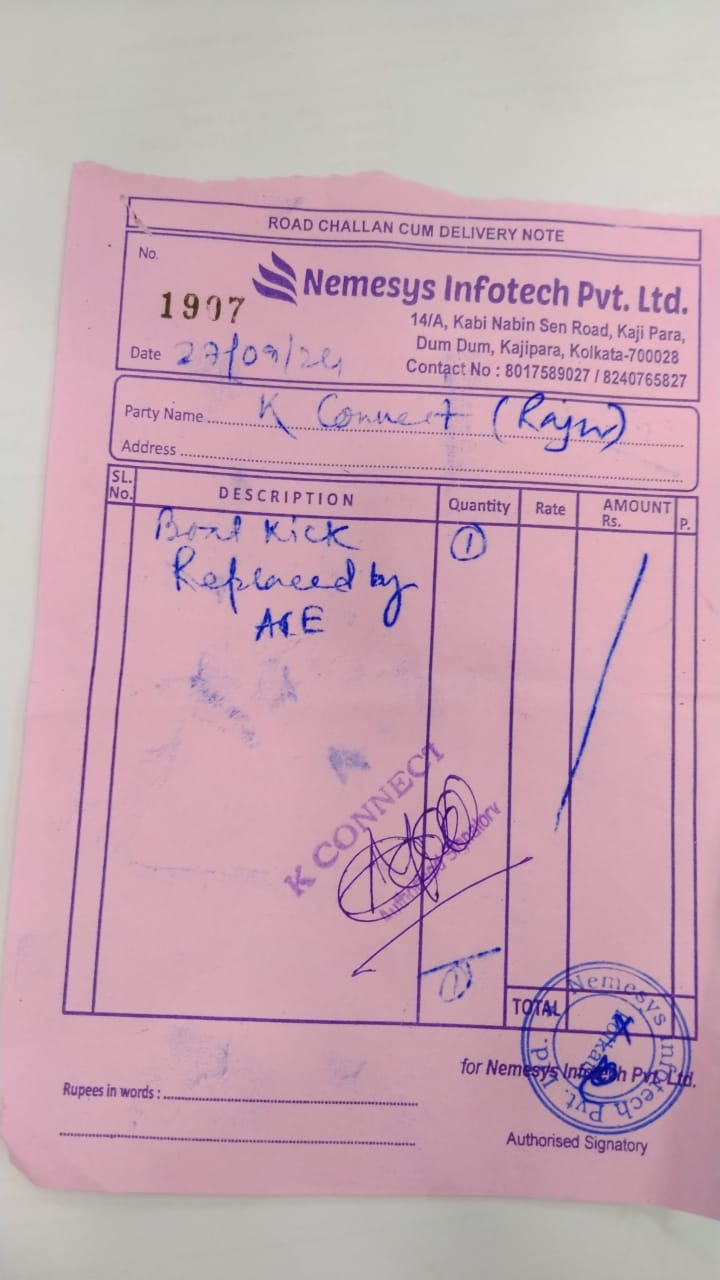 ROAD CHALLAN CUM DELIVERY NOTE
No.
1907
Nemesys Infotech Pvt. Ltd.
14/A, Kabi Nabin Sen Road, Kaji Para,
Dum Dum, Kajipara, Kolkata-700028
Contact No : 8017589027 / 8240765827
Date 27/09/24
Party Name K Connect (Rajw)
Address
SL. No. DESCRIPTION Quantity Rate AMOUNT Rs. P.
Boat Kick 1
Replaced by
ACE
K CONNECT
Authorised Signatory
1
TOTAL
Nemesys Infotech Pvt. Ltd.
Kolkata
for Nemesys Infotech Pvt. Ltd.
Rupees in words :
Authorised Signatory